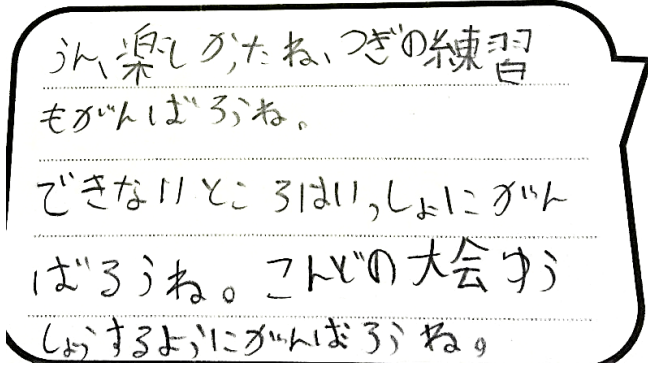 うん、楽しかったね、つぎの練習
もがんばろうね。
できないところはいっしょにがん
ばろうね。こんどの大会ゆう
しょうするようにがんばろうね。